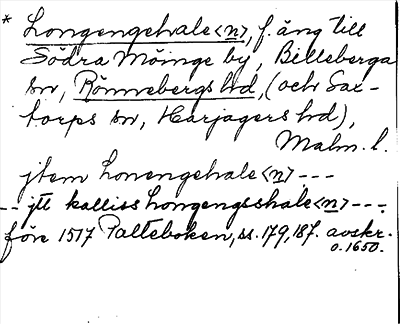 * Longengehale <n>, f. äng till
Södra Möinge by, Billeberga
sn, Rönnebergs hd, (och Sax-
torps sn, Harjagers hd),
Malm. l.
jtem Lonengehale <n> ---
-- jtt kalliss Longengsshale <n> ---
före 1517 Palteboken, ss. 179, 187. avskr.
o. 1650.